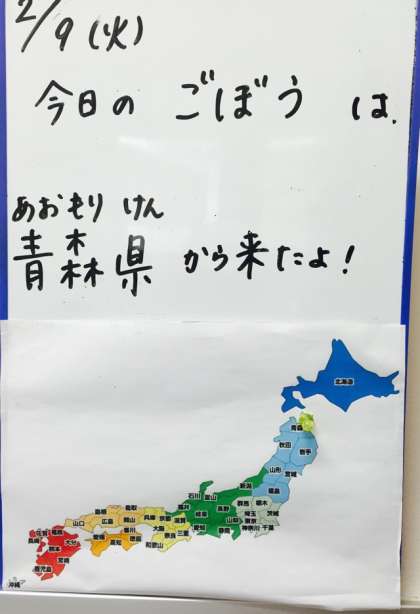 2/9(火)
今日の ごぼう は、
あおもり けん
青森県 から来たよ!
北海道
青森
秋田
岩手
山形
宮城
福島
新潟
石川 富山
群馬 栃木
福井
長野
茨城
岐阜
埼玉
山梨 東京
愛知 静岡
神奈川 千葉
島根 鳥取
兵庫 京都 滋賀
山口
広島 岡山
大阪
奈良 三重
和歌山
愛媛 香川
高知 徳島
佐賀 福岡
長崎
大分
熊本
宮崎
鹿児島
沖縄